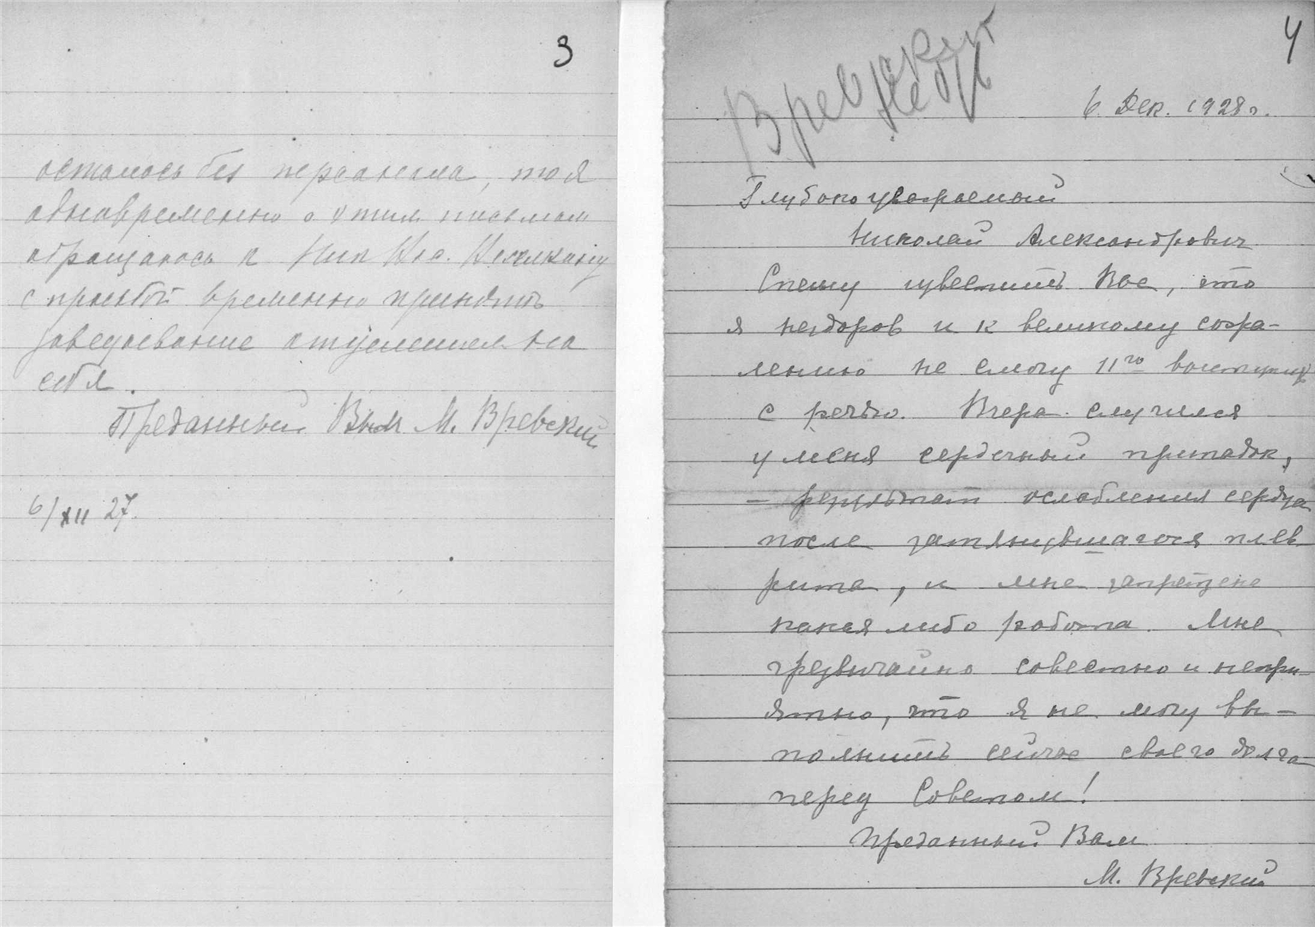 3
осталось без персонала, то я
одновременно с этим письмом
обращаюсь к Ник
с просьбой временно принять
заведование отделением на
себя.
Преданный Вам М. Вревский
6/XII 27.
4
Вревский
6 Дек. 1928 г.
Глубокоуважаемый
Николай Александрович
Спешу известить Вас, что
я нездоров и к великому сожа-
лению не смогу 11го выступить
с речью. Вчера случился
у меня сердечный припадок,
– результат ослабления сердца
после затянувшагося плев
рита, и мне запрещена
какая либо работа. Мне
чрезвычайно совестно и непри-
ятно, что я не могу вы-
полнить сейчас своего долга
перед Советом!
Преданный Вам
М. Вревский